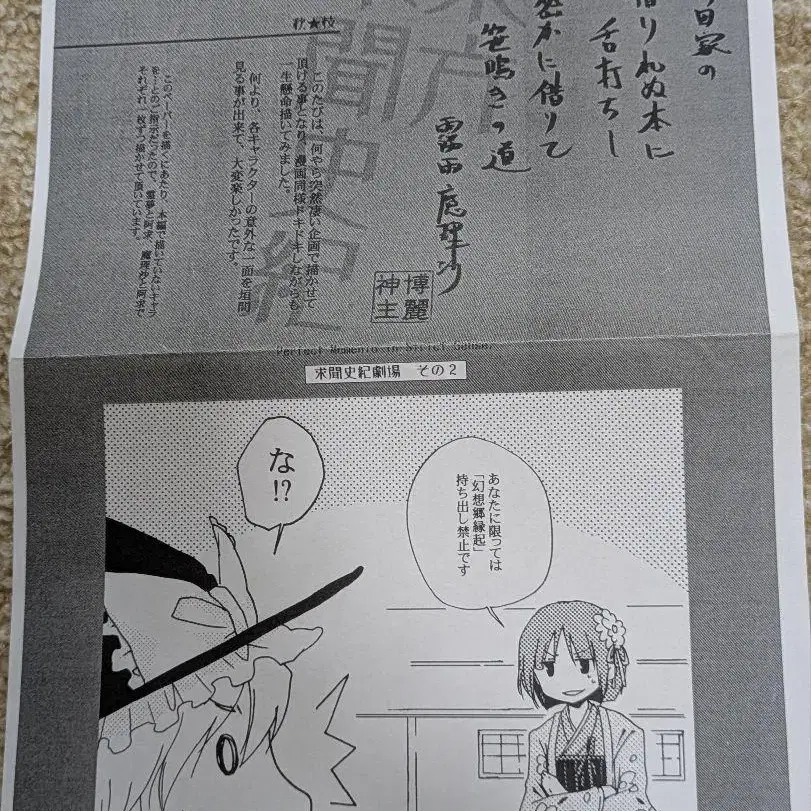 家の
りれぬ本に
舌打ちし
密かに借りて
笹鳴きの道
霧雨魔理沙
博麗
神主
方
聞史紀
秋★枝
このたびは、何やら突然凄い企画で描かせて
頂ける事となり、漫画同様ドキドキしながらも
一生懸命描いてみました。
何より、各キャラクターの意外な一面を垣間
見る事が出来て、大変楽しかったです。
このペーパーを描くにあたり、本編で描いていないキャラ
を!とのご指示だったので、霊夢と阿求、魔理沙と阿求で
それぞれ一枚ずつ描かせて頂いています。
Perfect Memento in Strict Sense.
求聞史紀劇場 その2
あなたに限っては
「幻想郷縁起」
持ち出し禁止です
な!?